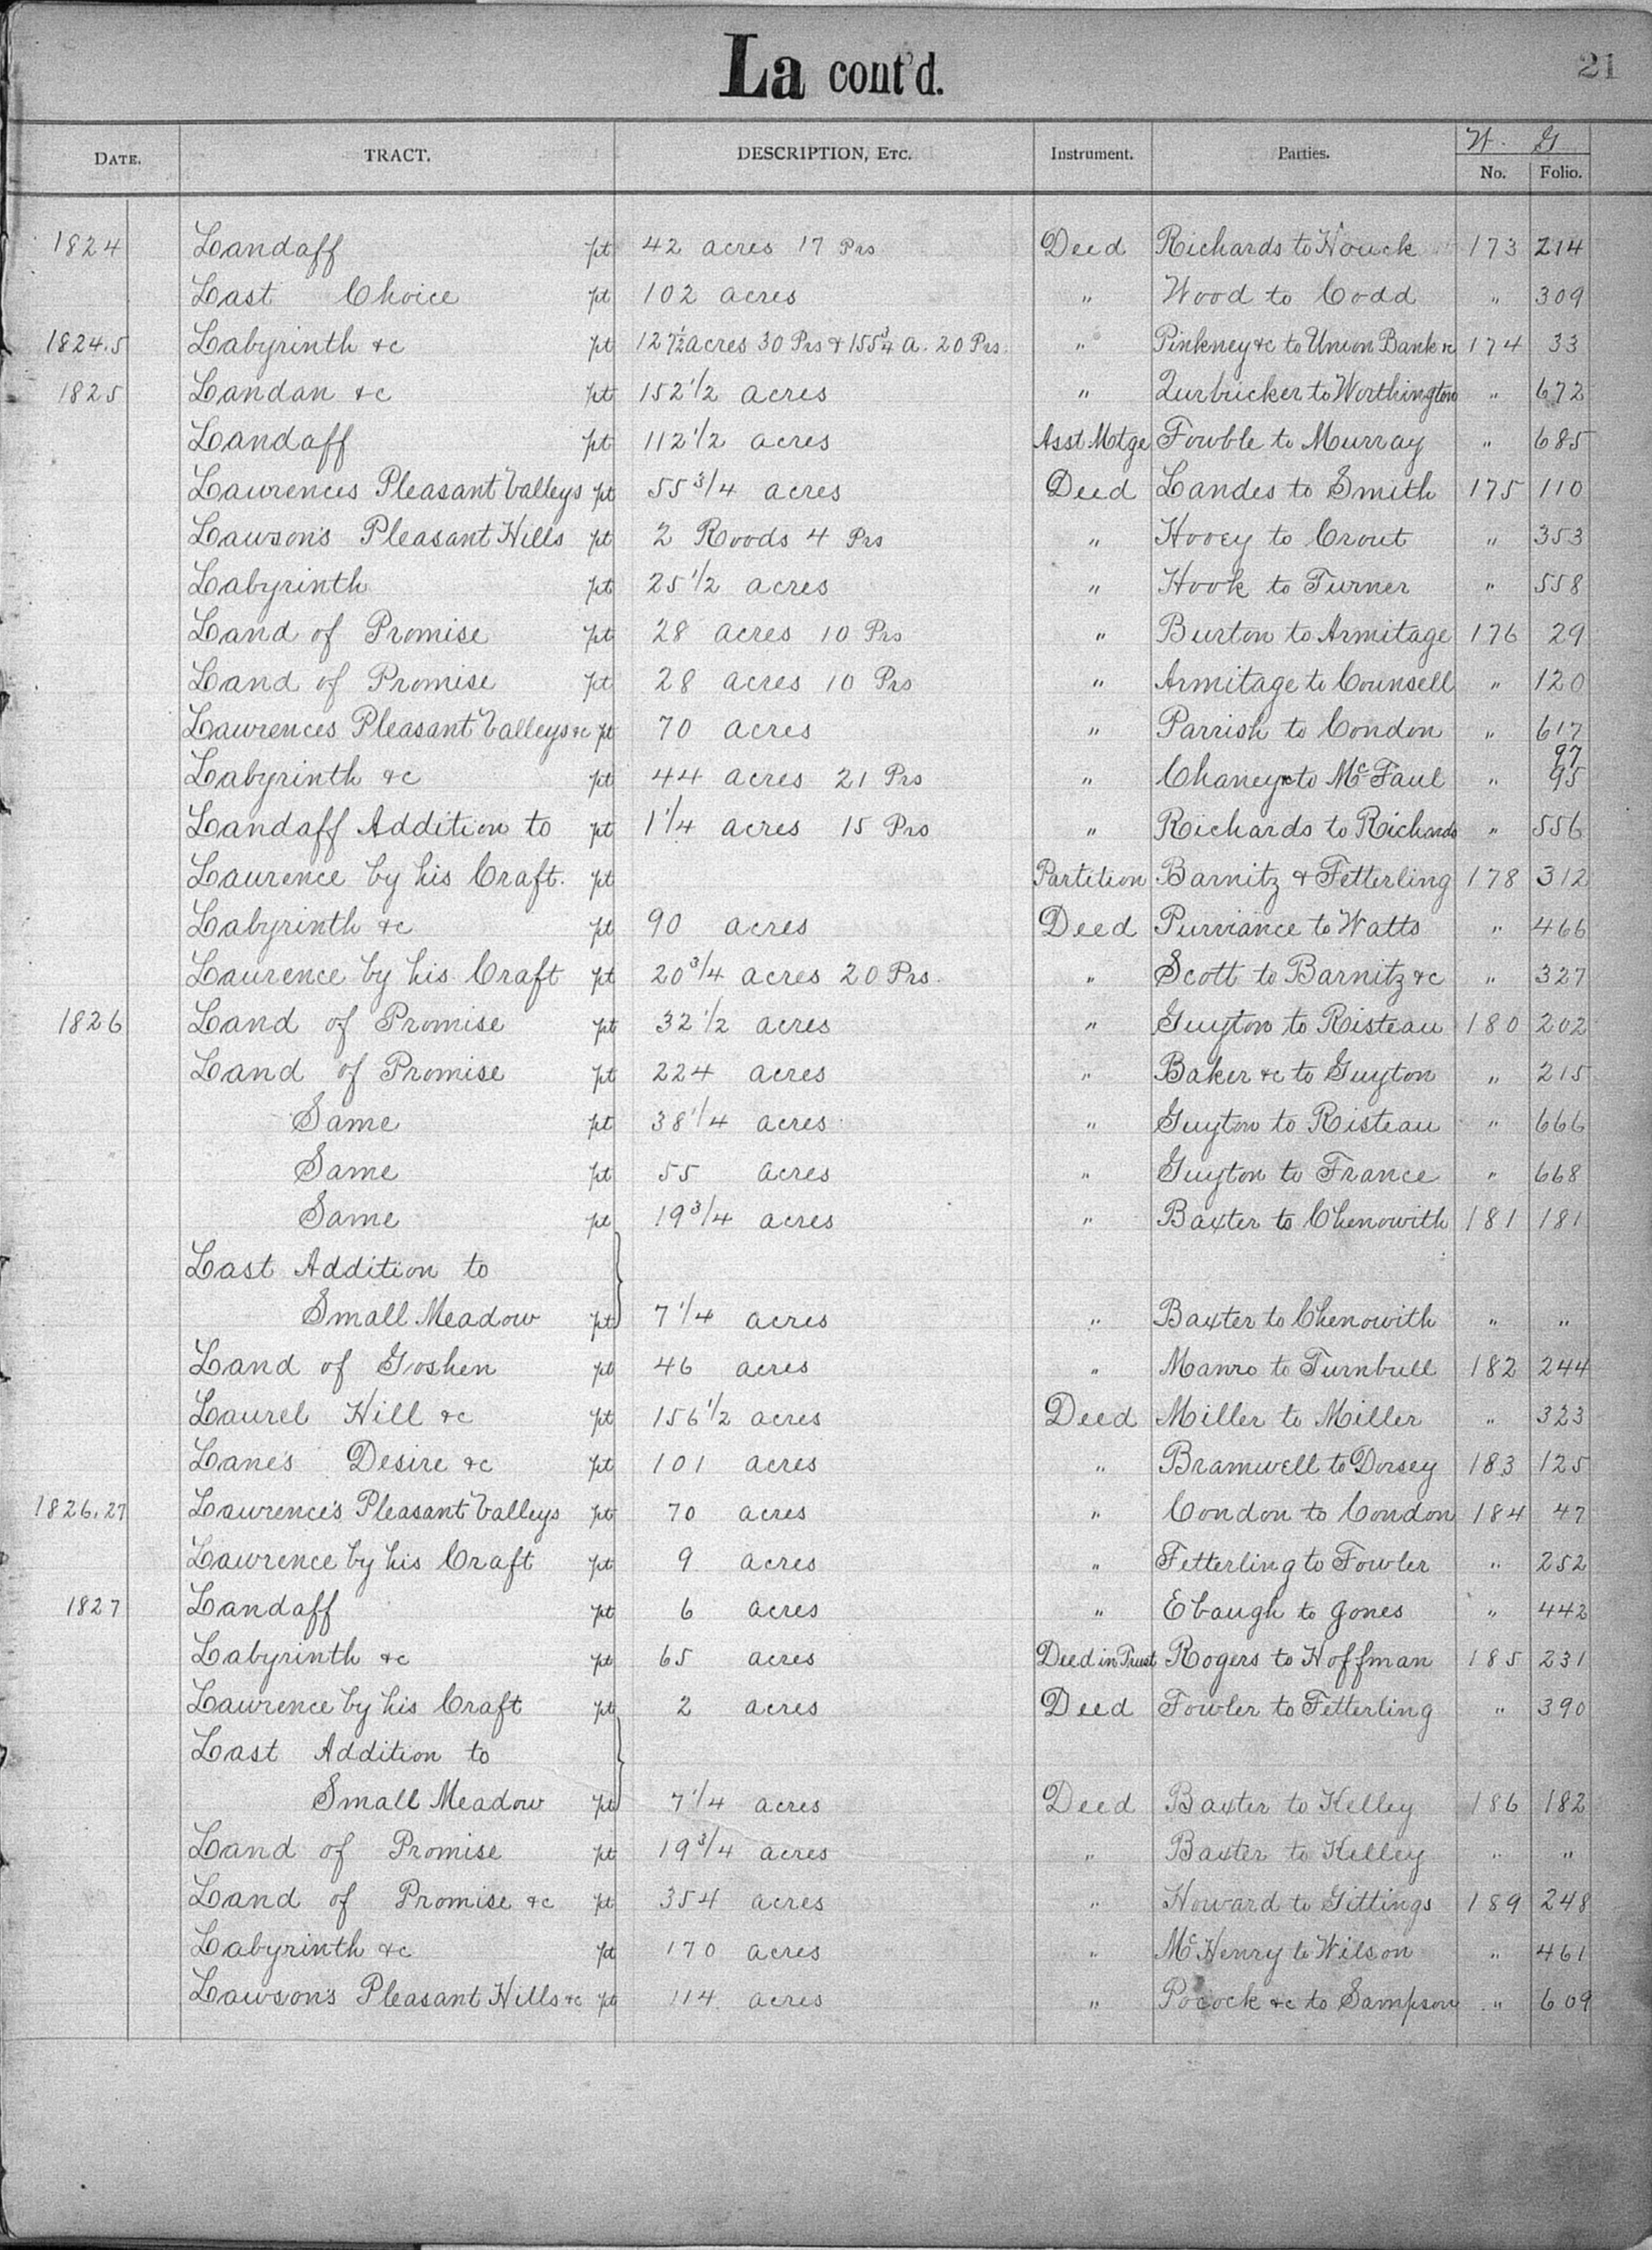 La cont'd.
21
DATE. TRACT. DESCRIPTION, ETC. Instrument. Parties. W. G. No. Folio.
1824 Landaff pt 42 acres 17 Prs Deed Richards to Houck 173 214
Last Choice pt 102 acres " Wood to Codd " 309
1824.5 Labyrinth &c pt 127 1/2 acres 30 Prs & 155 3/4 a. 20 Prs. " Pinkney &c to Union Bank &c 174 33
1825 Landan &c pt 152 1/2 acres " Zurbucker to Worthington " 672
Landaff pt 112 1/2 acres Asst Motge Fowble to Murray " 685
Laurences Pleasant Valleys pt 55 3/4 acres Deed Landes to Smith 175 110
Lawson's Pleasant Hills pt 2 Roods 4 Prs " Hooey to Crout " 353
Labyrinth pt 25 1/2 acres " Hook to Turner " 558
Land of Promise pt 28 acres 10 Prs " Burton to Armitage 176 29
Land of Promise pt 28 acres 10 Prs " Armitage to Counsell " 120
Lawrences Pleasant Valleys &c pt 70 acres " Parrish to Condon " 617
Labyrinth &c pt 44 acres 21 Prs " Chaney &c to McFaul " 97 95
Landaff Addition to pt 1 1/4 acres 15 Prs " Richards to Richards " 556
Laurence by his Craft. pt Partition Barnitz & Fetterling 178 312
Labyrinth &c pt 90 acres Deed Purviance to Watts " 466
Laurence by his Craft pt 20 3/4 acres 20 Prs. " Scott to Barnitz &c " 327
1826 Land of Promise pt 32 1/2 acres " Guyton to Risteau 180 202
Land of Promise pt 224 acres " Baker &c to Guyton " 215
Same pt 38 1/4 acres " Guyton to Risteau " 666
Same pt 55 acres " Guyton to France " 668
Same pt 19 3/4 acres " Baxter to Chenowith 181 181
Last Addition to
Small Meadow pt 7 1/4 acres " Baxter to Chenowith " "
Land of Goshen pt 46 acres " Manro to Turnbull 182 244
Laurel Hill &c pt 156 1/2 acres Deed Miller to Miller " 323
Lane's Desire &c pt 101 acres " Bramwell to Dorsey 183 125
1826.27 Lawrence's Pleasant Valleys pt 70 acres " Condon to Condon 184 47
Lawrence by his Craft pt 9 acres " Fetterling to Fowler " 252
1827 Landaff pt 6 acres " Ebaugh to Jones " 442
Labyrinth &c pt 65 acres Deed in Trust Rogers to Hoffman 185 231
Lawrence by his Craft pt 2 acres Deed Fowler to Fetterling " 390
Last Addition to
Small Meadow pt 7 1/4 acres Deed Baxter to Kelley 186 182
Land of Promise pt 19 3/4 acres " Baxter to Kelley " "
Land of Promise &c pt 354 acres " Howard to Gittings 189 248
Labyrinth &c pt 170 acres " McHenry to Wilson " 461
Lawson's Pleasant Hills &c pt 114 acres " Pocock &c to Sampson " 609